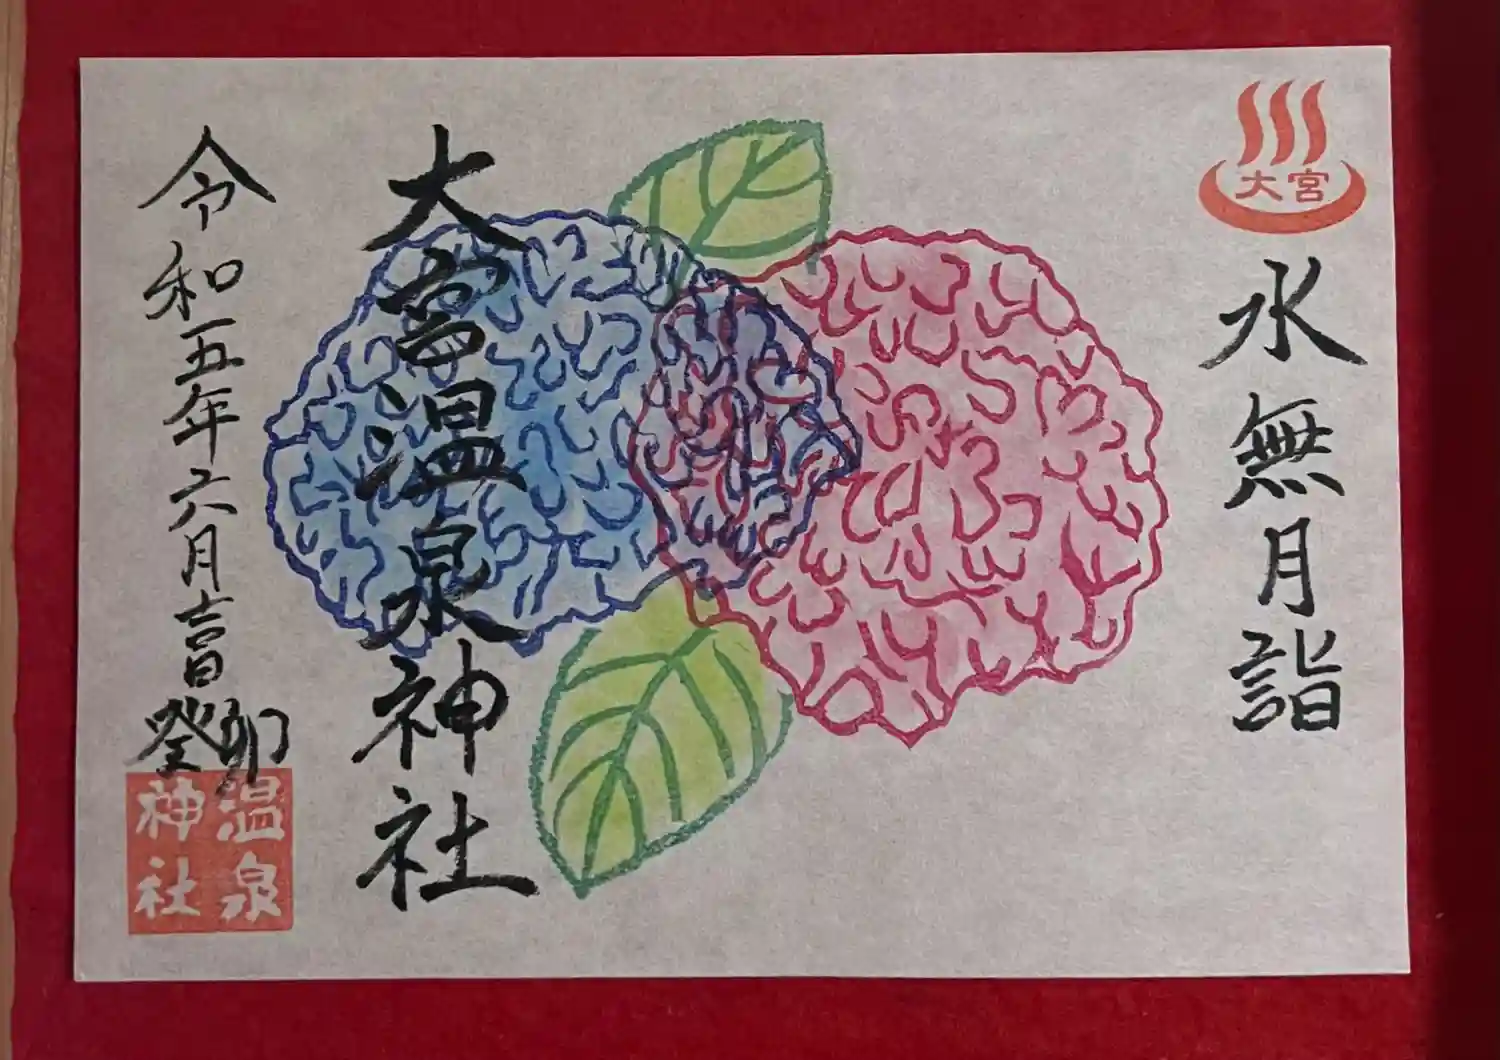 大宮
水無月詣
大宮温泉神社
令和五年六月吉日
癸卯
温泉
神社